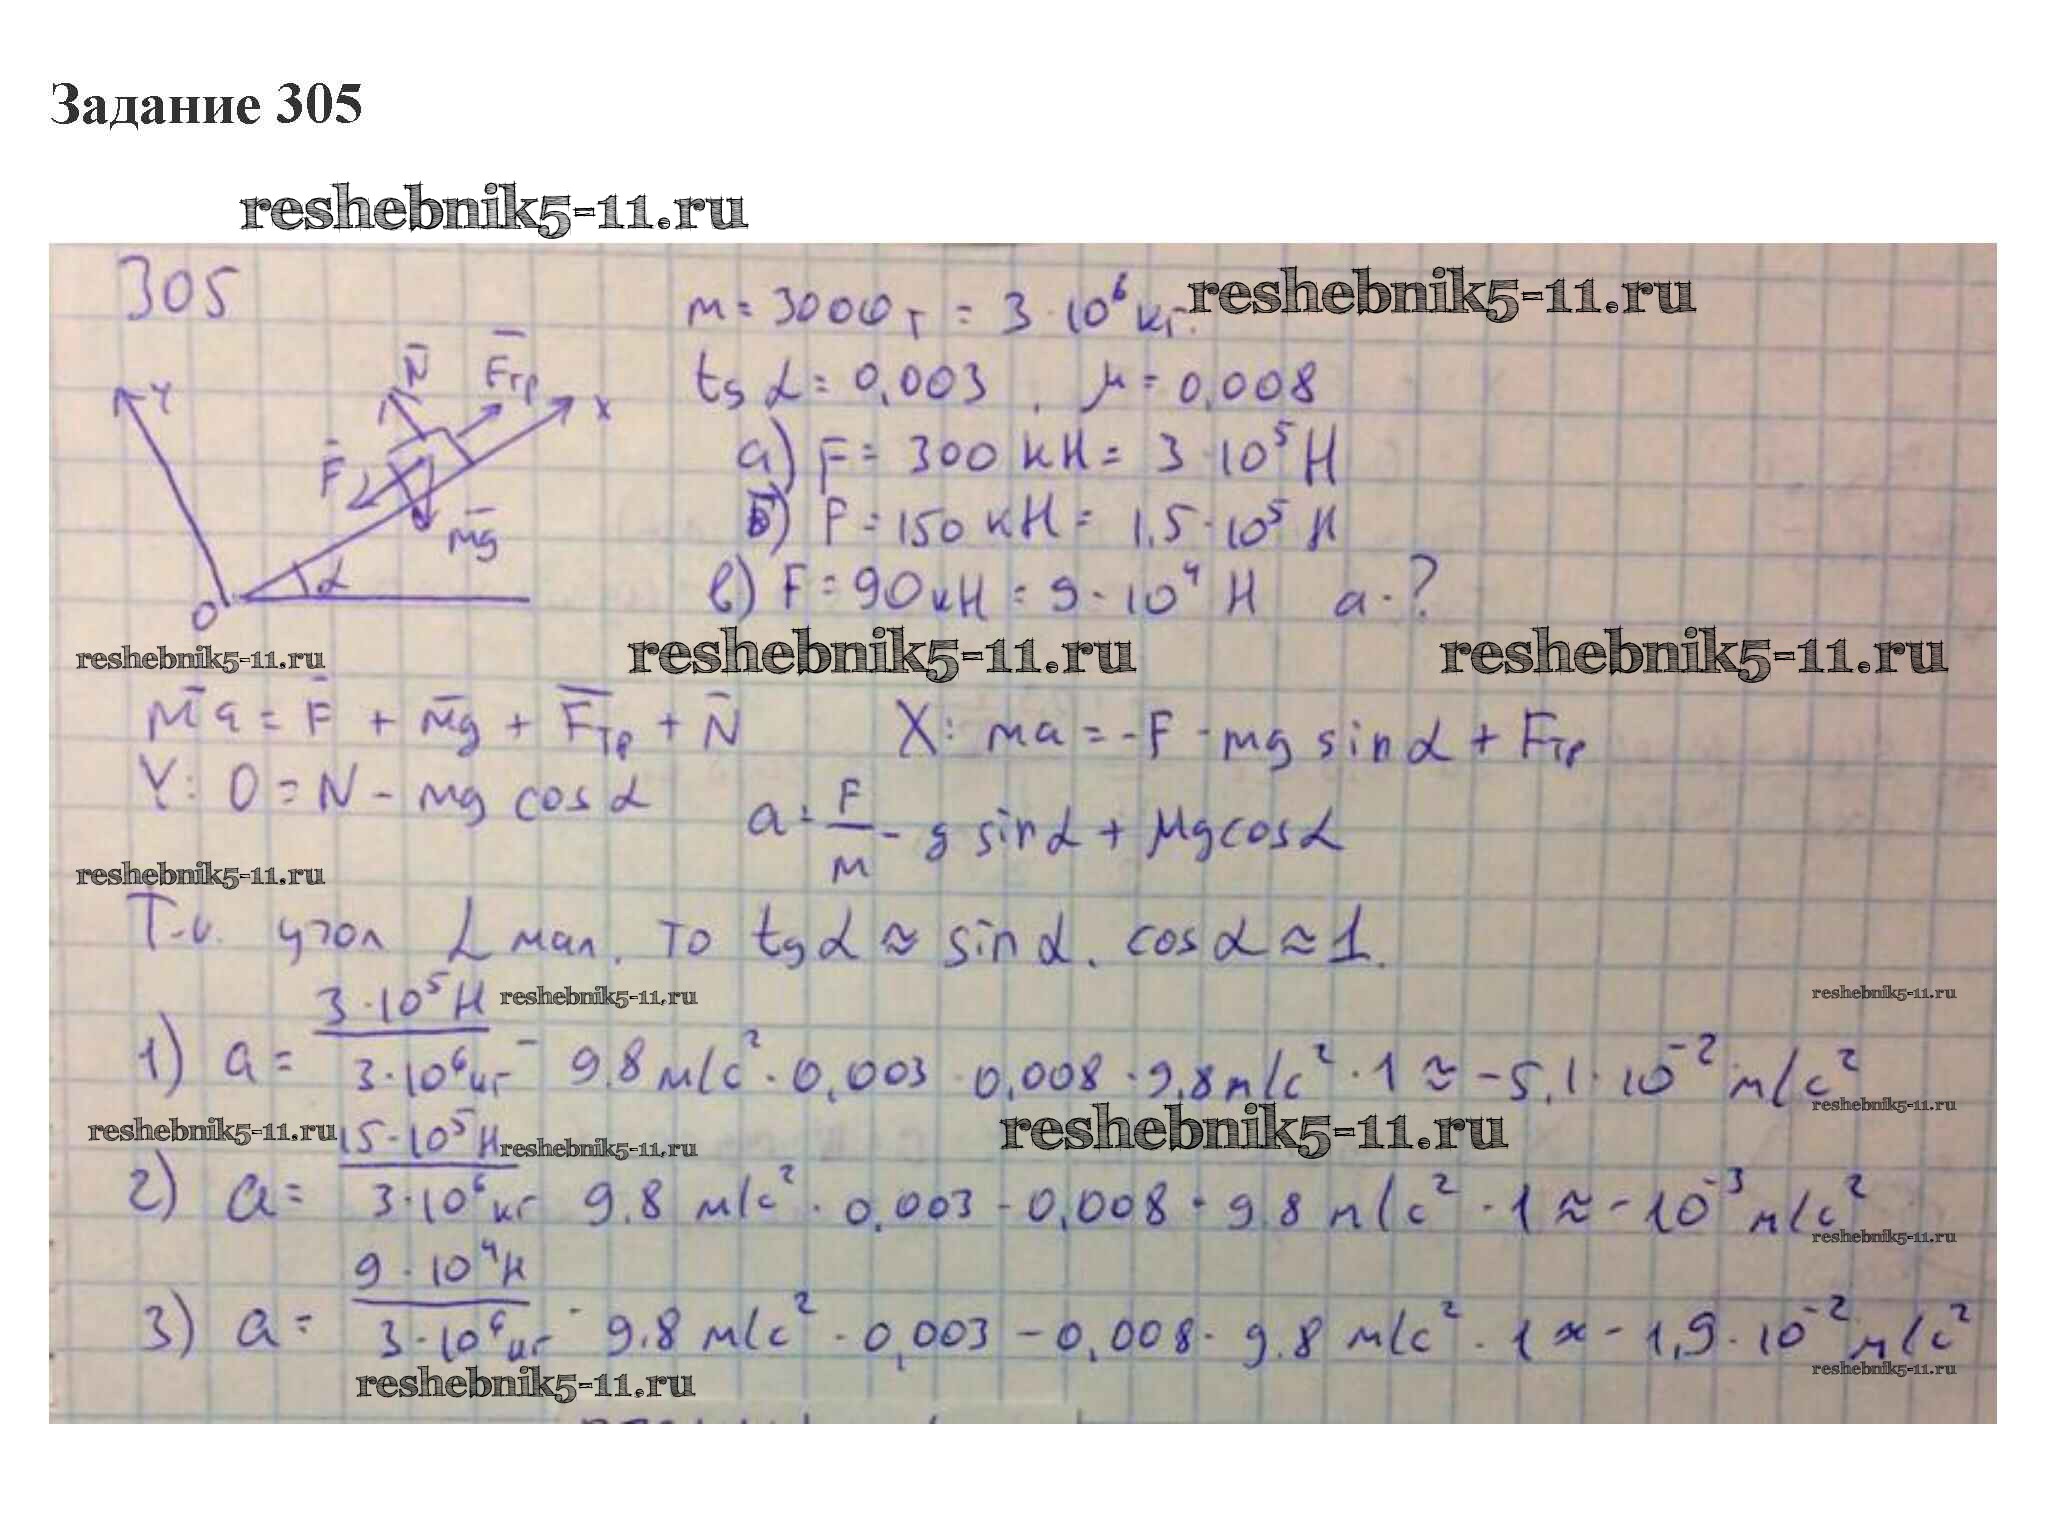 Задание 305
reshebnik5-11.ru
305
m = 3000 т = 3 · 10⁶ кг.
reshebnik5-11.ru
tg α = 0,003 , μ = 0,008
а) F = 300 кН = 3 · 10⁵ Н
б) F = 150 кН = 1,5 · 10⁵ Н
в) F = 90 кН = 9 · 10⁴ Н a - ?
Y N̄ F̄тр X
F̄ m̄g
O α
reshebnik5-11.ru reshebnik5-11.ru reshebnik5-11.ru
m̄a = F̄ + m̄g + F̄тр + N̄ X: ma = -F - mg sin α + Fтр
Y: 0 = N - mg cos α
a = F/m - g sin α + μg cos α
reshebnik5-11.ru
Т.к. угол α мал, то tg α ≈ sin α, cos α ≈ 1.
reshebnik5-11.ru reshebnik5-11.ru
1) a = 3 · 10⁵ Н / 3 · 10⁶ кг - 9,8 м/с² · 0,003 - 0,008 · 9,8 м/с² · 1 ≈ -5,1 · 10⁻² м/с²
reshebnik5-11.ru
reshebnik5-11.ru reshebnik5-11.ru reshebnik5-11.ru
2) a = 15 · 10⁵ Н / 3 · 10⁶ кг 9,8 м/с² · 0,003 - 0,008 · 9,8 м/с² · 1 ≈ -10⁻³ м/с²
reshebnik5-11.ru
3) a = 9 · 10⁴ Н / 3 · 10⁶ кг - 9,8 м/с² · 0,003 - 0,008 · 9,8 м/с² · 1 ≈ -1,9 · 10⁻² м/с²
reshebnik5-11.ru reshebnik5-11.ru